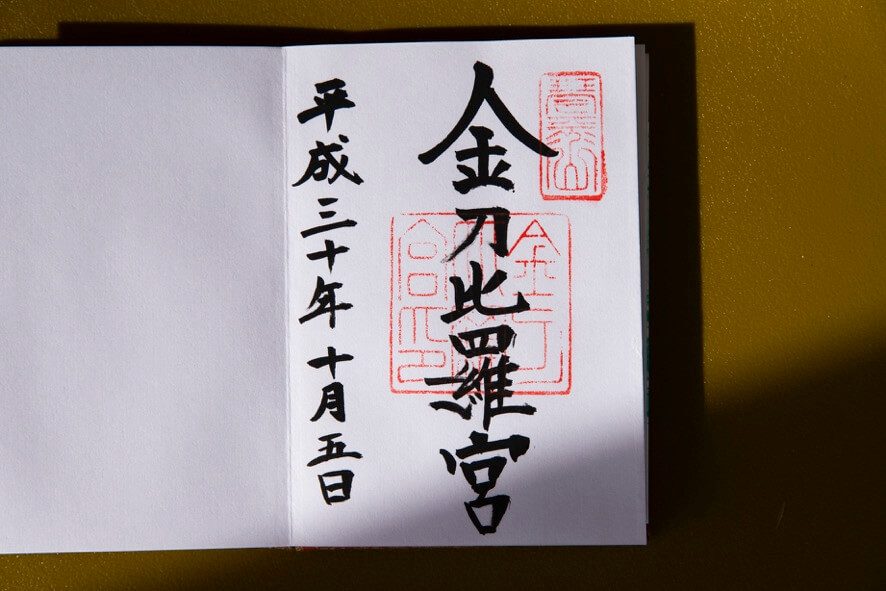 金刀比羅宮
平成三十年十月五日